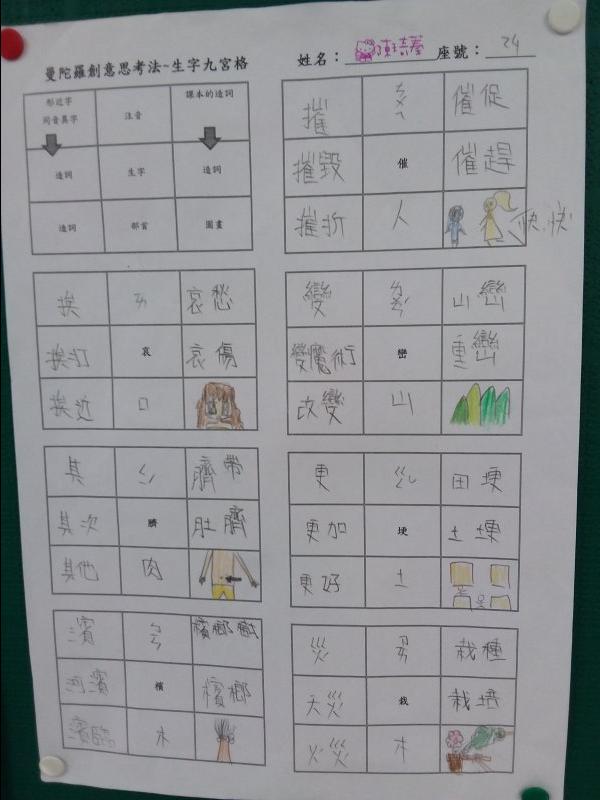 曼陀羅創意思考法~生字九宮格
姓名： 座號： 24
形近字
同音異字
注音
課本的造詞
造詞
生字
造詞
造詞
部首
圖畫
摧
催促
摧毀
催
催趕
摧折
人
快.快
挨
ㄞ
哀愁
挨打
哀
哀傷
挨近
口
變
山巒
變魔術
巒
重巒
改變
山
其
臍帶
其次
臍
肚臍
其他
肉
更
ㄍㄥˇ
田埂
更加
埂
土埂
更好
土
濱
ㄅㄧㄣ
河濱
檳
檳榔
濱臨
木
災
ㄗㄞ
栽種
天災
栽
栽培
火災
木